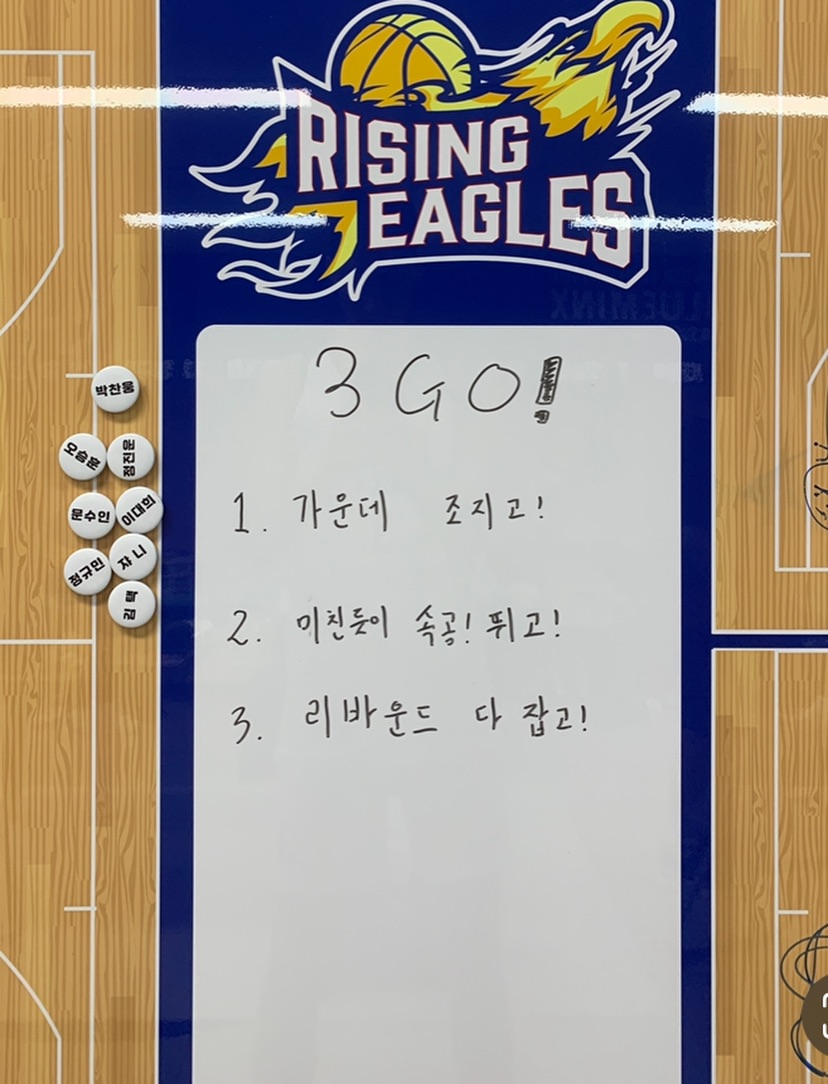 RISING
EAGLES
3 GO!
박찬웅
오승훈
정진운
1. 가운데 조지고!
문수인
이대희
정규민
쟈니
김택
2. 미친듯이 속공! 뛰고!
3. 리바운드 다 잡고!